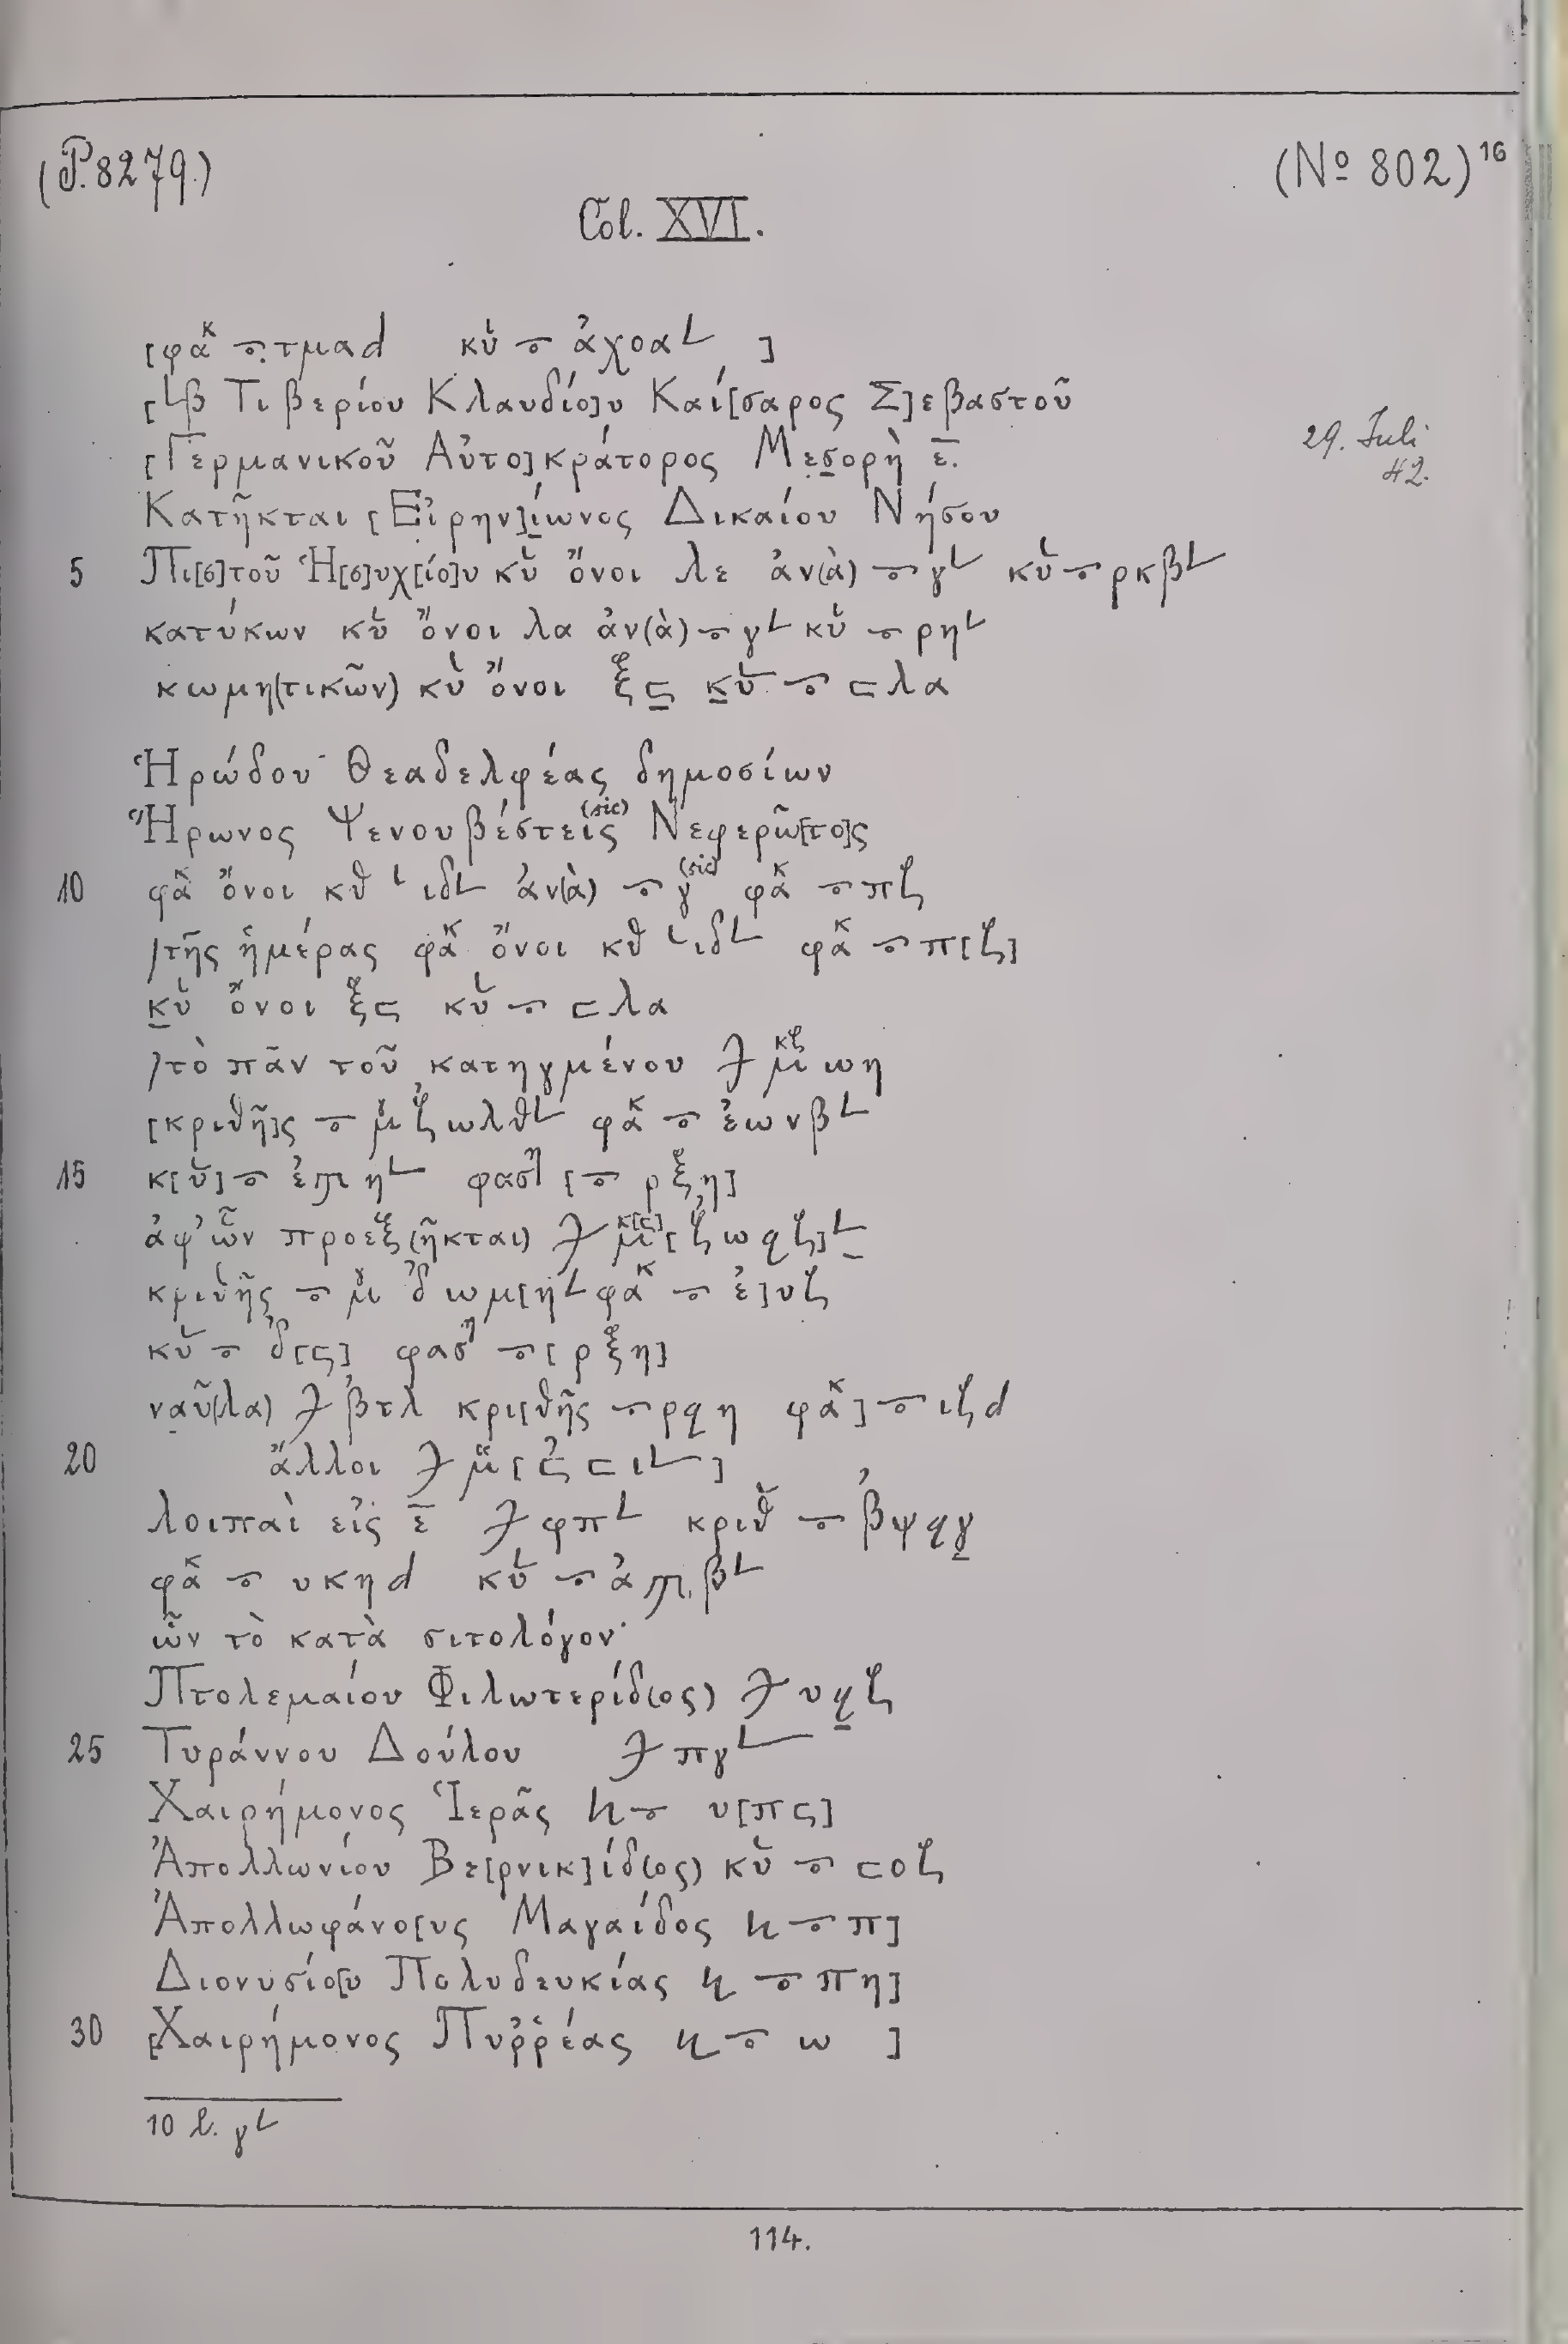 (P. 8279.)
(No 802) 16
Col. XVI.
[φακ 𐆄 τμαd κυ 𐆄 ἀχοα𐅵 ]
[𐅹β Τιβερίου Κλαυδίο]υ Καί[σαρος Σ]εβαστοῦ
[Γερμανικοῦ Αὐτο]κράτορος Μεσορὴ ε̅.
29. Juli 42.
Κατῆκται [Εἰρην]ίωνος Δικαίου Νήσου
5 Πι[σ]τοῦ Ἡ[σ]υχ[ίο]υ κυ ὄνοι λε ἀν(ὰ) 𐆄 γ𐅵 κυ 𐆄 ρκβ𐅵
κατύκων κυ ὄνοι λα ἀν(ὰ) 𐆄 γ𐅵 κυ 𐆄 ρη𐅵
κωμη(τικῶν) κυ ὄνοι ξϛ κυ 𐆄 ϲλα
Ἡρώδου Θεαδελφέας δημοσίων
Ἥρωνος Ψενουβέστεις (sic) Νεφερῶ[το]ς
10 φακ ὄνοι κθ 𐅹 ιδ𐅵 ἀν(ὰ) 𐆄 γ (sic) φακ 𐆄 πζ
/τῆς ἡμέρας φακ ὄνοι κθ 𐅹 ιδ𐅵 φακ 𐆄 π[ζ]
κυ ὄνοι ξϛ κυ 𐆄 ϲλα
/τὸ πᾶν τοῦ κατηγμένου μκζ ωη
[κριθῆ]ς 𐆄 μγ ζωλθ𐅵 φακ 𐆄 ἐωνβ𐅵
15 κ[υ] 𐆄 ἐϡη𐅵 φαση [𐆄 ρξη]
ἀφ' ὧν προεξ(ῆκται) μκ[ϛ] [ζωϙζ]𐅵
κριθῆς 𐆄 μγ δωμ[η𐅵 φακ 𐆄 ἐ]υζ
κυ 𐆄 δ[ϛ] φαση 𐆄 [ρξη]
ναῦ(λα) βτλ κρι[θῆς 𐆄 ρϙη φακ] 𐆄 ιζd
20 ἄλλοι μ[ϛϲι𐅵]
λοιπαὶ εἰς ε̅ φπ𐅵 κριθ 𐆄 βψϙγ
φακ 𐆄 υκηd κυ 𐆄 ἀϡβ𐅵
ὧν τὸ κατὰ σιτολόγον·
Πτολεμαίου Φιλωτερίδ(ος) υϙζ
25 Τυράννου Δούλου πγ𐅵
Χαιρήμονος Ἱερᾶς κ 𐆄 υ[πϛ]
Ἀπολλωνίου Βε[ρνικ]ίδ(ος) κυ 𐆄 ϲοζ
Ἀπολλωφάνο[υς Μαγαίδος κ 𐆄 π]
Διονυσίο[υ Πολυδευκίας κ 𐆄 πη]
30 [Χαιρήμονος Πυῤῥέας κ 𐆄 ω ]
10 l. γ𐅵
114.